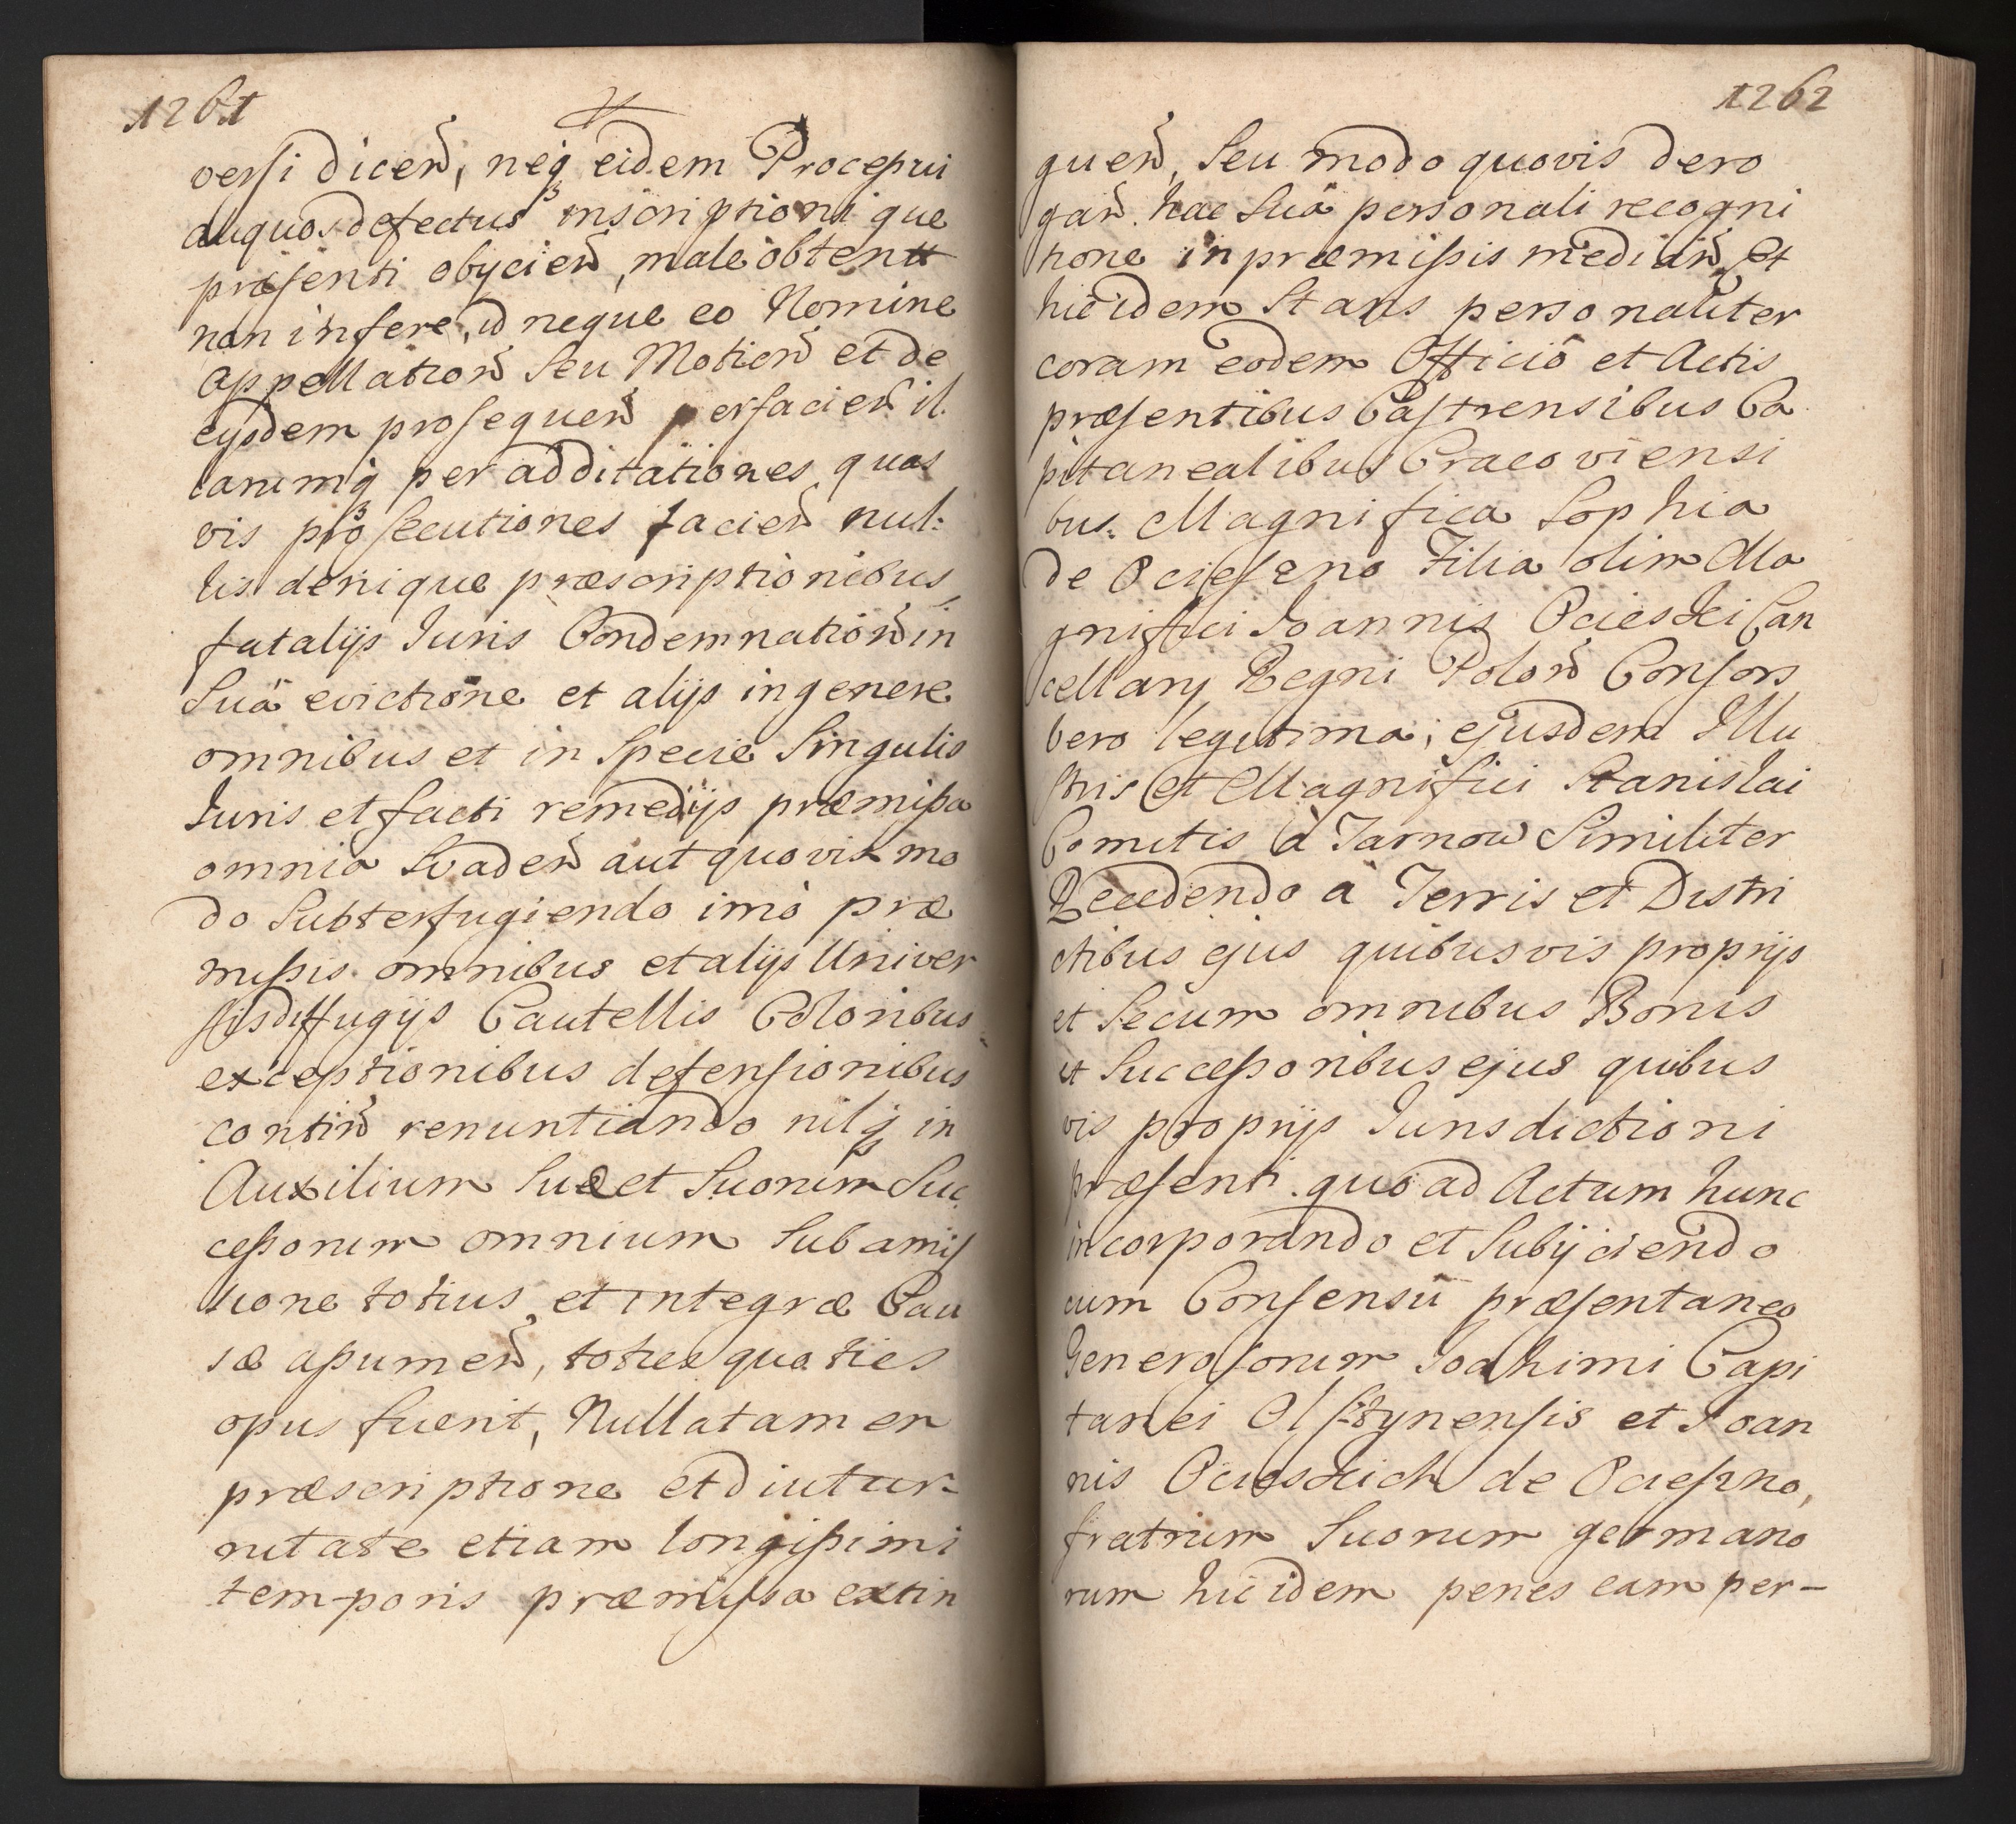 1261
versi dicen̄, neq̨ eidem Processui
aliquos defectus inscriptioni que
præsenti obijcien̄, male obtent
non infere, id neque eo Nomine
appellation̄ seu Motion̄ et de
eysdem prosequen̄ persacien̄ il.
larumq̨ per additationes quas
vis prosecutiones facien̄ nul:
lis denique præscriptionibus,
fatalijs Juris Condemnation̄ in
Suâ evictione et alijs in genere
omnibus et in Specie Singulis
Juris et facti remedijs præmissa
omnia Evaden̄ aut quovis mo
do Subterfugiendo imò præ
missis omnibus et alijs Univer
sis diffugijs Cautellis Coloribus
exceptionibus defensionibus
contin̄ renuntiando nilq̨ in
Auxilium Suæ et Suorum Suc
cessorum omnium Sub amis
sione totius et integræ Cau
sæ assumen̄, toties quoties
opus fuerit, Nulla tamen
præscriptione et diutur-
nitate etiam longissimi
temporis præmissa extin
1262
guen̄, Seu modo quovis dero
gan̄ hac Suâ personali recogni
tione in præmissis median̄ Et
hic idem Stans personaliter
coram eodem Officiô et Actis
præsentibus Castrensibus Ca
pitanealibus Cracoviensi
bus. Magnifica Sophia
de Ociesseno Filia olim Ma
gnifici Joannis Ocieski Can
cellarij Regni Polon̄ Consors
vero legitima, ejusdem Illu
stris et Magnifici Stanislai
Comitis à Tarnow Similiter
Recedendo à Terris et Distri
ctibus ejus quibusvis proprijs
et Secum omnibus Bonis
et Successoribus ejus quibus
vis proprijs Jurisdictioni
præsenti quo ad Actum hunc
incorporando et Subijciendo
cum Consensû præsentaneo
Generosorum Joahimi Capi
tanei Olsztynensis et Joan
nis Ociesskich de Ociessno,
fratrum Suorum germano
rum hic idem penes eam per-